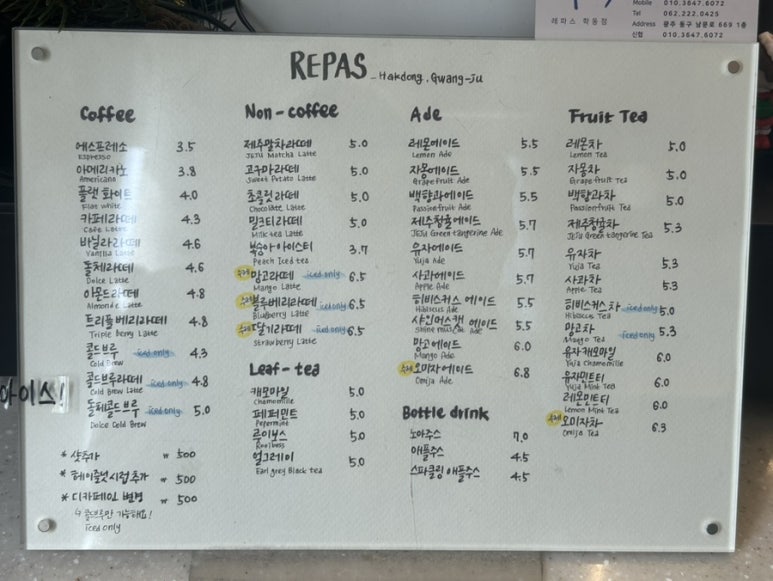 Mobile 010.3647.6072
Tel 062.222.0425
레파스 학동점
Address 광주 동구 남문로 669 1층
신협 010.3647.6072
REPAS _ Hakdong, Gwang-Ju
Coffee
에스프레소 3.5
Espresso
아메리카노 3.8
Americano
플랫 화이트 4.0
Flat White
카페라떼 4.3
Cafe Latte
바닐라라떼 4.6
Vanilla Latte
돌체라떼 4.6
Dolce Latte
아몬드라떼 4.8
Almonde Latte
트리플베리라떼 4.8
Triple Berry Latte
콜드브루 iced only 4.3
Cold Brew
콜드브루라떼 iced only 4.8
Cold Brew Latte
돌체콜드브루 iced only 5.0
Dolce Cold Brew
* 샷추가 ₩ 500
* 헤이즐넛시럽추가 ₩ 500
* 디카페인 변경 ₩ 500
↳ 콜드브루만 가능해요!
iced only
아이스!
Non-coffee
제주말차라떼 5.0
JEJU Matcha Latte
고구마라떼 5.0
Sweet Potato Latte
초콜릿라떼 5.0
Chocolate Latte
밀크티라떼 5.0
Milk tea Latte
복숭아아이스티 3.7
Peach Iced tea
수제 망고라떼 iced only 6.5
Mango Latte
수제 블루베리라떼 iced only 6.5
Blueberry Latte
수제 딸기라떼 iced only 6.5
Strawberry Latte
Leaf-tea
캐모마일 5.0
Chamomille
페퍼민트 5.0
Pepermint
루이보스 5.0
Rooibuss
얼그레이 5.0
Earl grey Black tea
Ade
레몬에이드 5.5
Lemon Ade
자몽에이드 5.5
Grapefruit Ade
백향과에이드 5.5
Passionfruit Ade
제주청귤에이드 5.7
JEJU Green tangerine Ade
유자에이드 5.7
Yuja Ade
사과에이드 5.7
Apple Ade
히비스커스 에이드 5.5
Hibiscus Ade
샤인머스캣 에이드 5.5
Shine muscat Ade
망고에이드 6.0
Mango Ade
수제 오미자에이드 6.8
Omija Ade
Bottle drink
노아주스 7.0
애플주스 4.5
스파클링 애플주스 4.5
Fruit Tea
레몬차 5.0
Lemon Tea
자몽차 5.0
Grapefruit Tea
백향과차 5.0
Passionfruit Tea
제주청귤차 5.3
JEJU Green tangerine Tea
유자차 5.3
Yuja Tea
사과차 5.3
Apple Tea
히비스커스차 iced only 5.0
Hibiscus Tea
망고차 iced only 5.3
Mango Tea
유자캐모마일 6.0
Yuja Chamomille
유자민트티 6.0
Yuja Mint Tea
레몬민트티 6.0
Lemon Mint Tea
수제 오미자차 6.3
Omija Tea